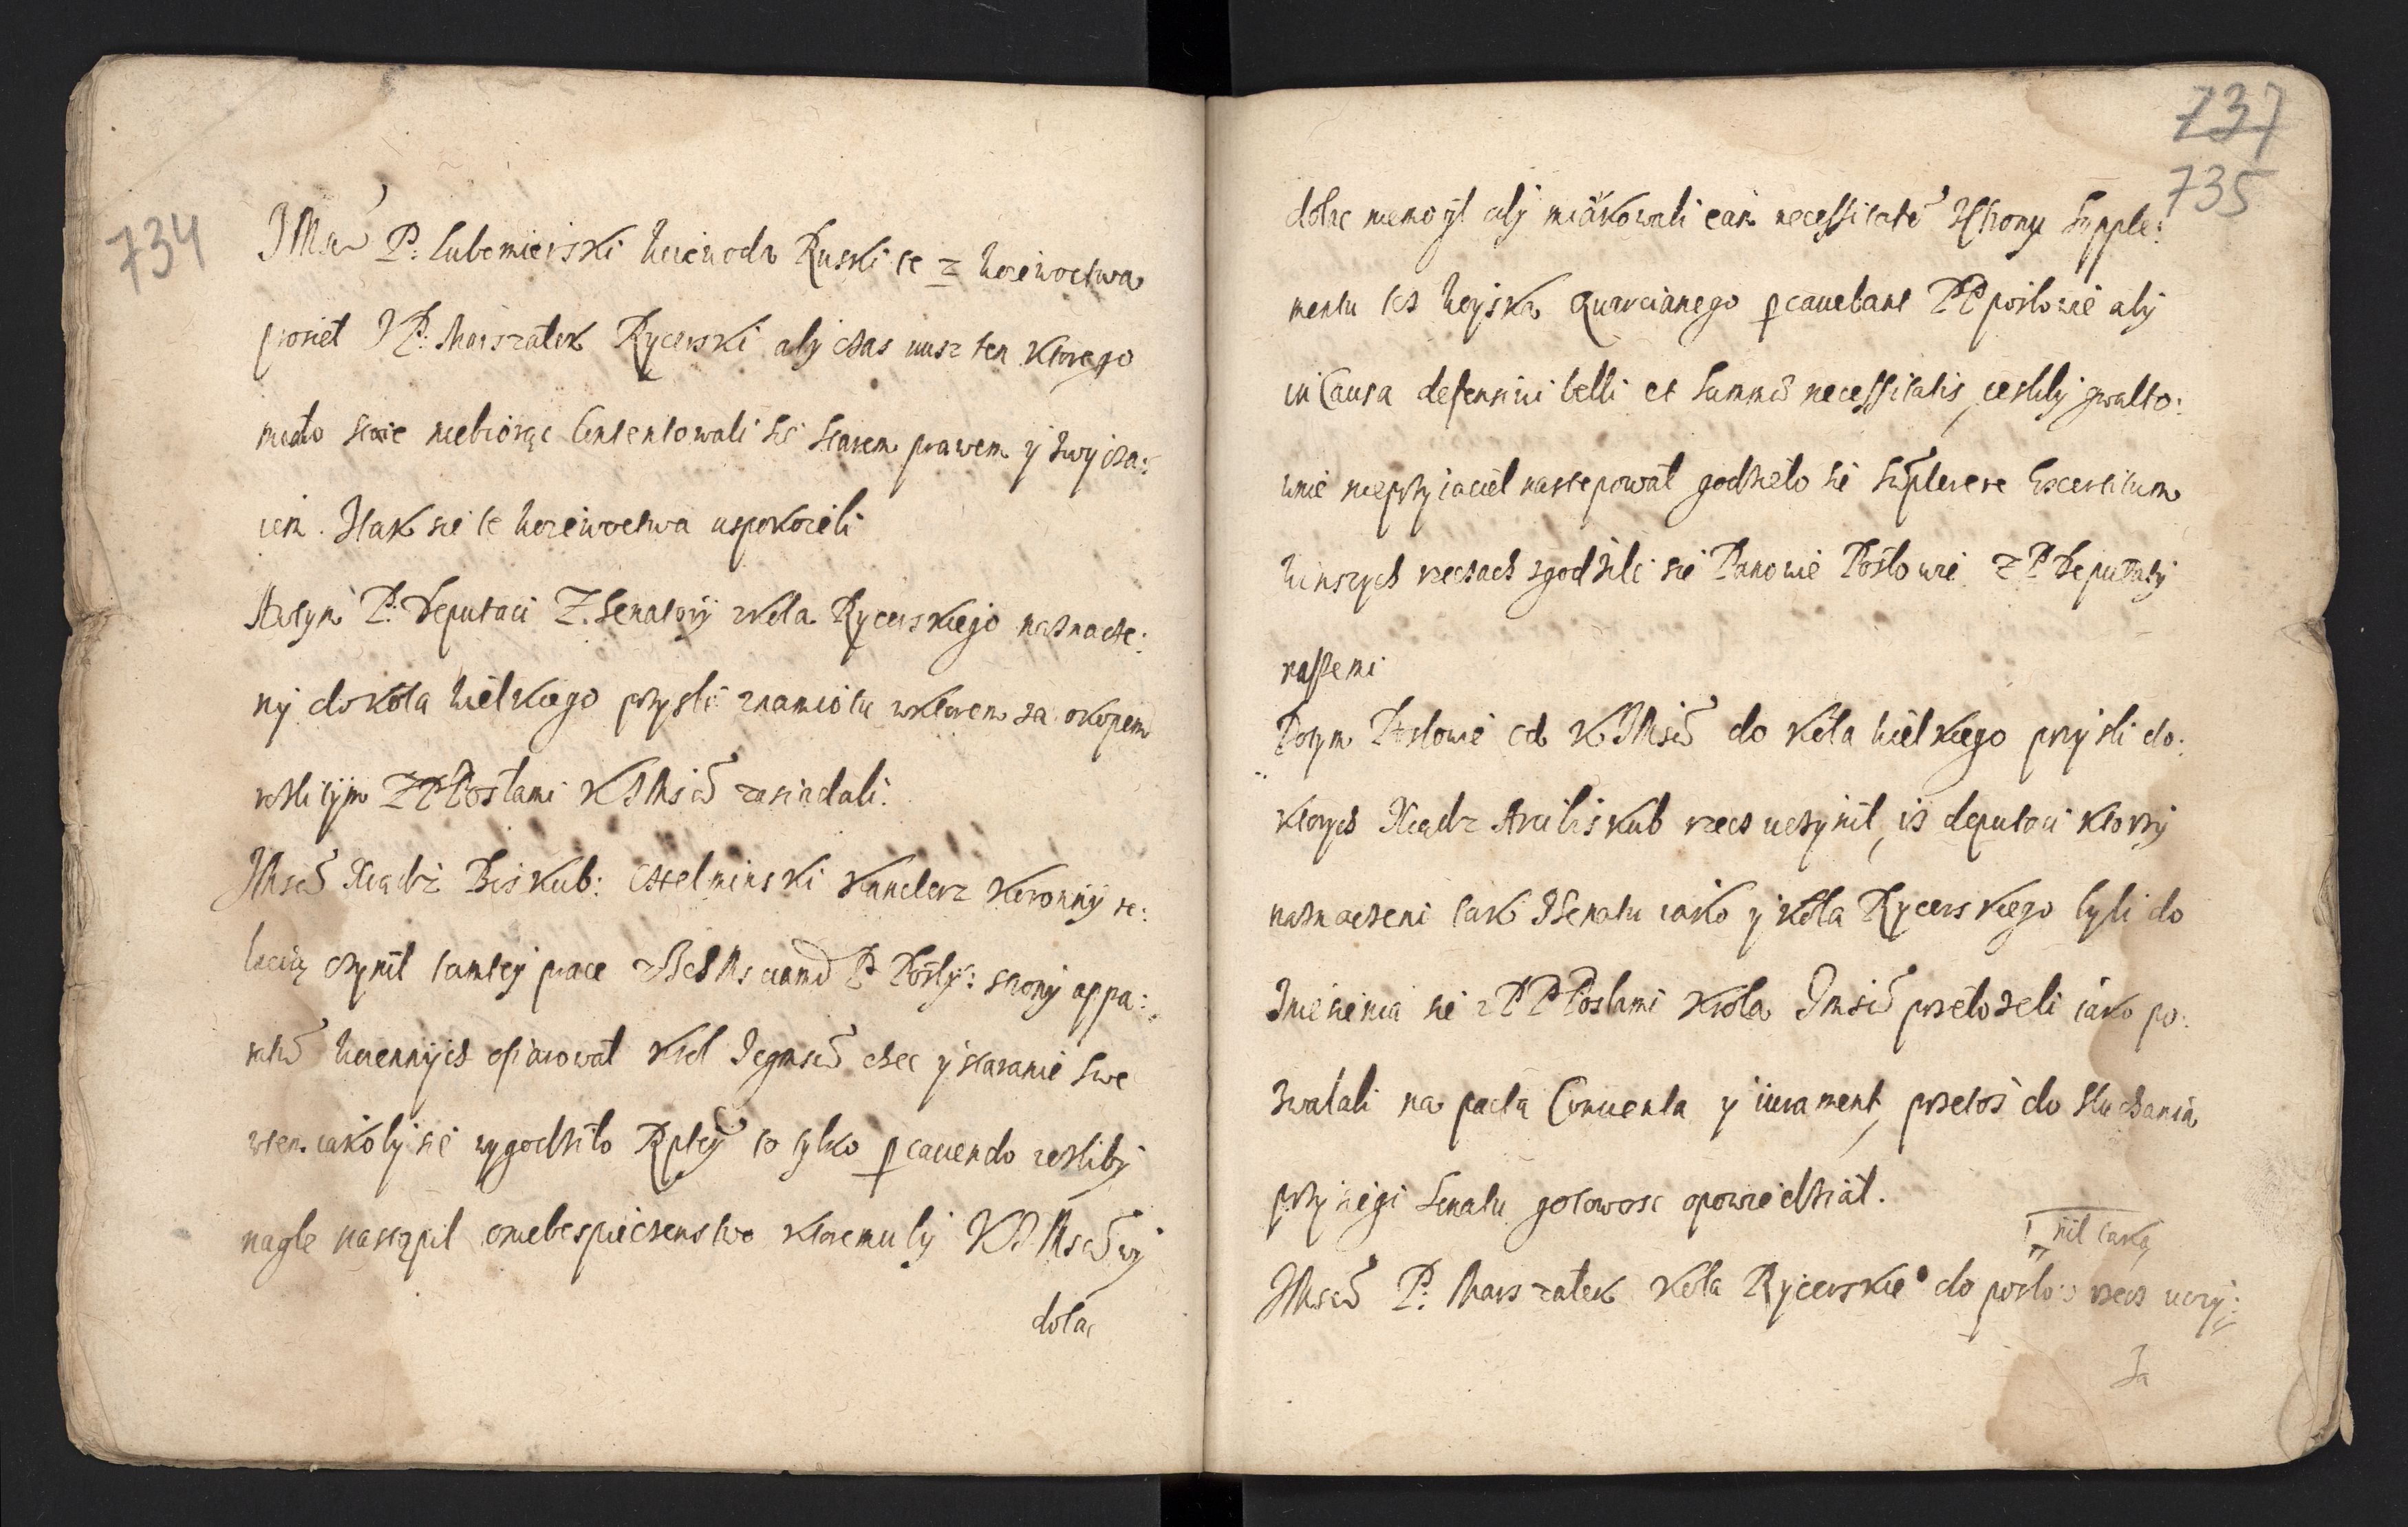 734
JMść P: Lubomierski Woiewoda Ruski te z Woiewoctwa
prosiel J P: Marszałek Rycerski aby czas nasz ten ktorego
mało staie niebiorąc Contentowali sie starem prawem y zwycza:
iem. Itak sie te Woiewoctwa uspokoieli
Natym P: Deputaci Z. Senatory zkoła Rycerskiego naznacze:
ny do koła Wielkiego przysli znamiotu wktorem za okopem
zPPPosłami KJMści zasiadali.
JMść Xiądz Biskub: Chelminski Kanclerz Koronny re:
lacią czynił tamtey prace zIchMsciami P Posły: strony appa:
ratu Woiennych ofiarował Krol Jegmść chec y staranie swe
wtem iakoby sie wygodziło Rptey to tylko pcauendo iesliby
nagle nastąpil oniebespieczenstwo ktoremu by KJMść wy
dołac
737
735
dołac niemogl aby miarkowali eam necessitatem Strony supple:
mentu tes Woyska Quarcianego pcauebant PP posłowie aby
in Causa defensiui belli et summae necessitatis, iesliby gwalto:
wnie nieprzyiaciel nastepował godzieło sie supplere Exercitum
Winszych rzeczach zgodzili sie Panowie Posłowie z P Deputaty
naszemi
Potym Posłowie od KJMści do Koła Wielkiego przysli do:
ktorych Xiądz Arcibiskub rzecz uczynił, is deputaci ktorzy
naznaczeni tak ZSenatu iako y koła Rycerskiego byli do
Zniesienia sie z PP Posłami Krola Jmści przełozeli iako po:
zwalali na pacta Conuenta y iurament, przetos do słuchania
przysiegi Senatu gotowosc opowiedział.
nil taką
JMść P: Marszałek Koła Rycerskie° do posłow rzecz uczy:
Ja